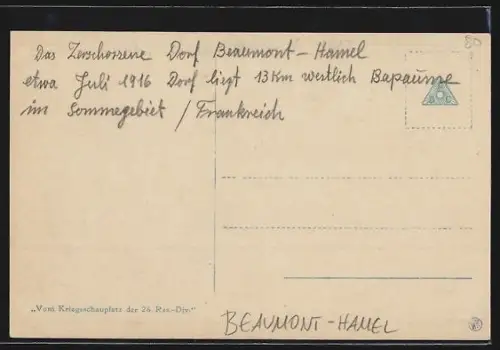 80
Das Zerschossene Dorf Beaumont - Hamel
etwa Juli 1916 Dorf liegt 13 Km westlich Bapaume
im Sommegebiet / Frankreich
„Vom Kriegsschauplatz der 26. Res.-Div."
BEAUMONT - HAMEL